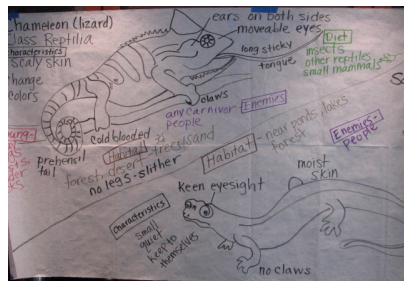 Chameleon (lizard)
Class Reptilia
Characteristics
scaly skin
change
colors
ears on both sides
moveable eyes
long sticky
tongue
Diet
insects
other reptiles
small mammals
claws
any carnivor-
people
Enemies
cold blooded
prehensil
tail
Habitat
trees, sand
forest, desert
no legs-slither
Habitat - near ponds, lakes
forest
Enemies-
people
moist
skin
keen eyesight
characteristics
small
quiet
keep to
themselves
no claws